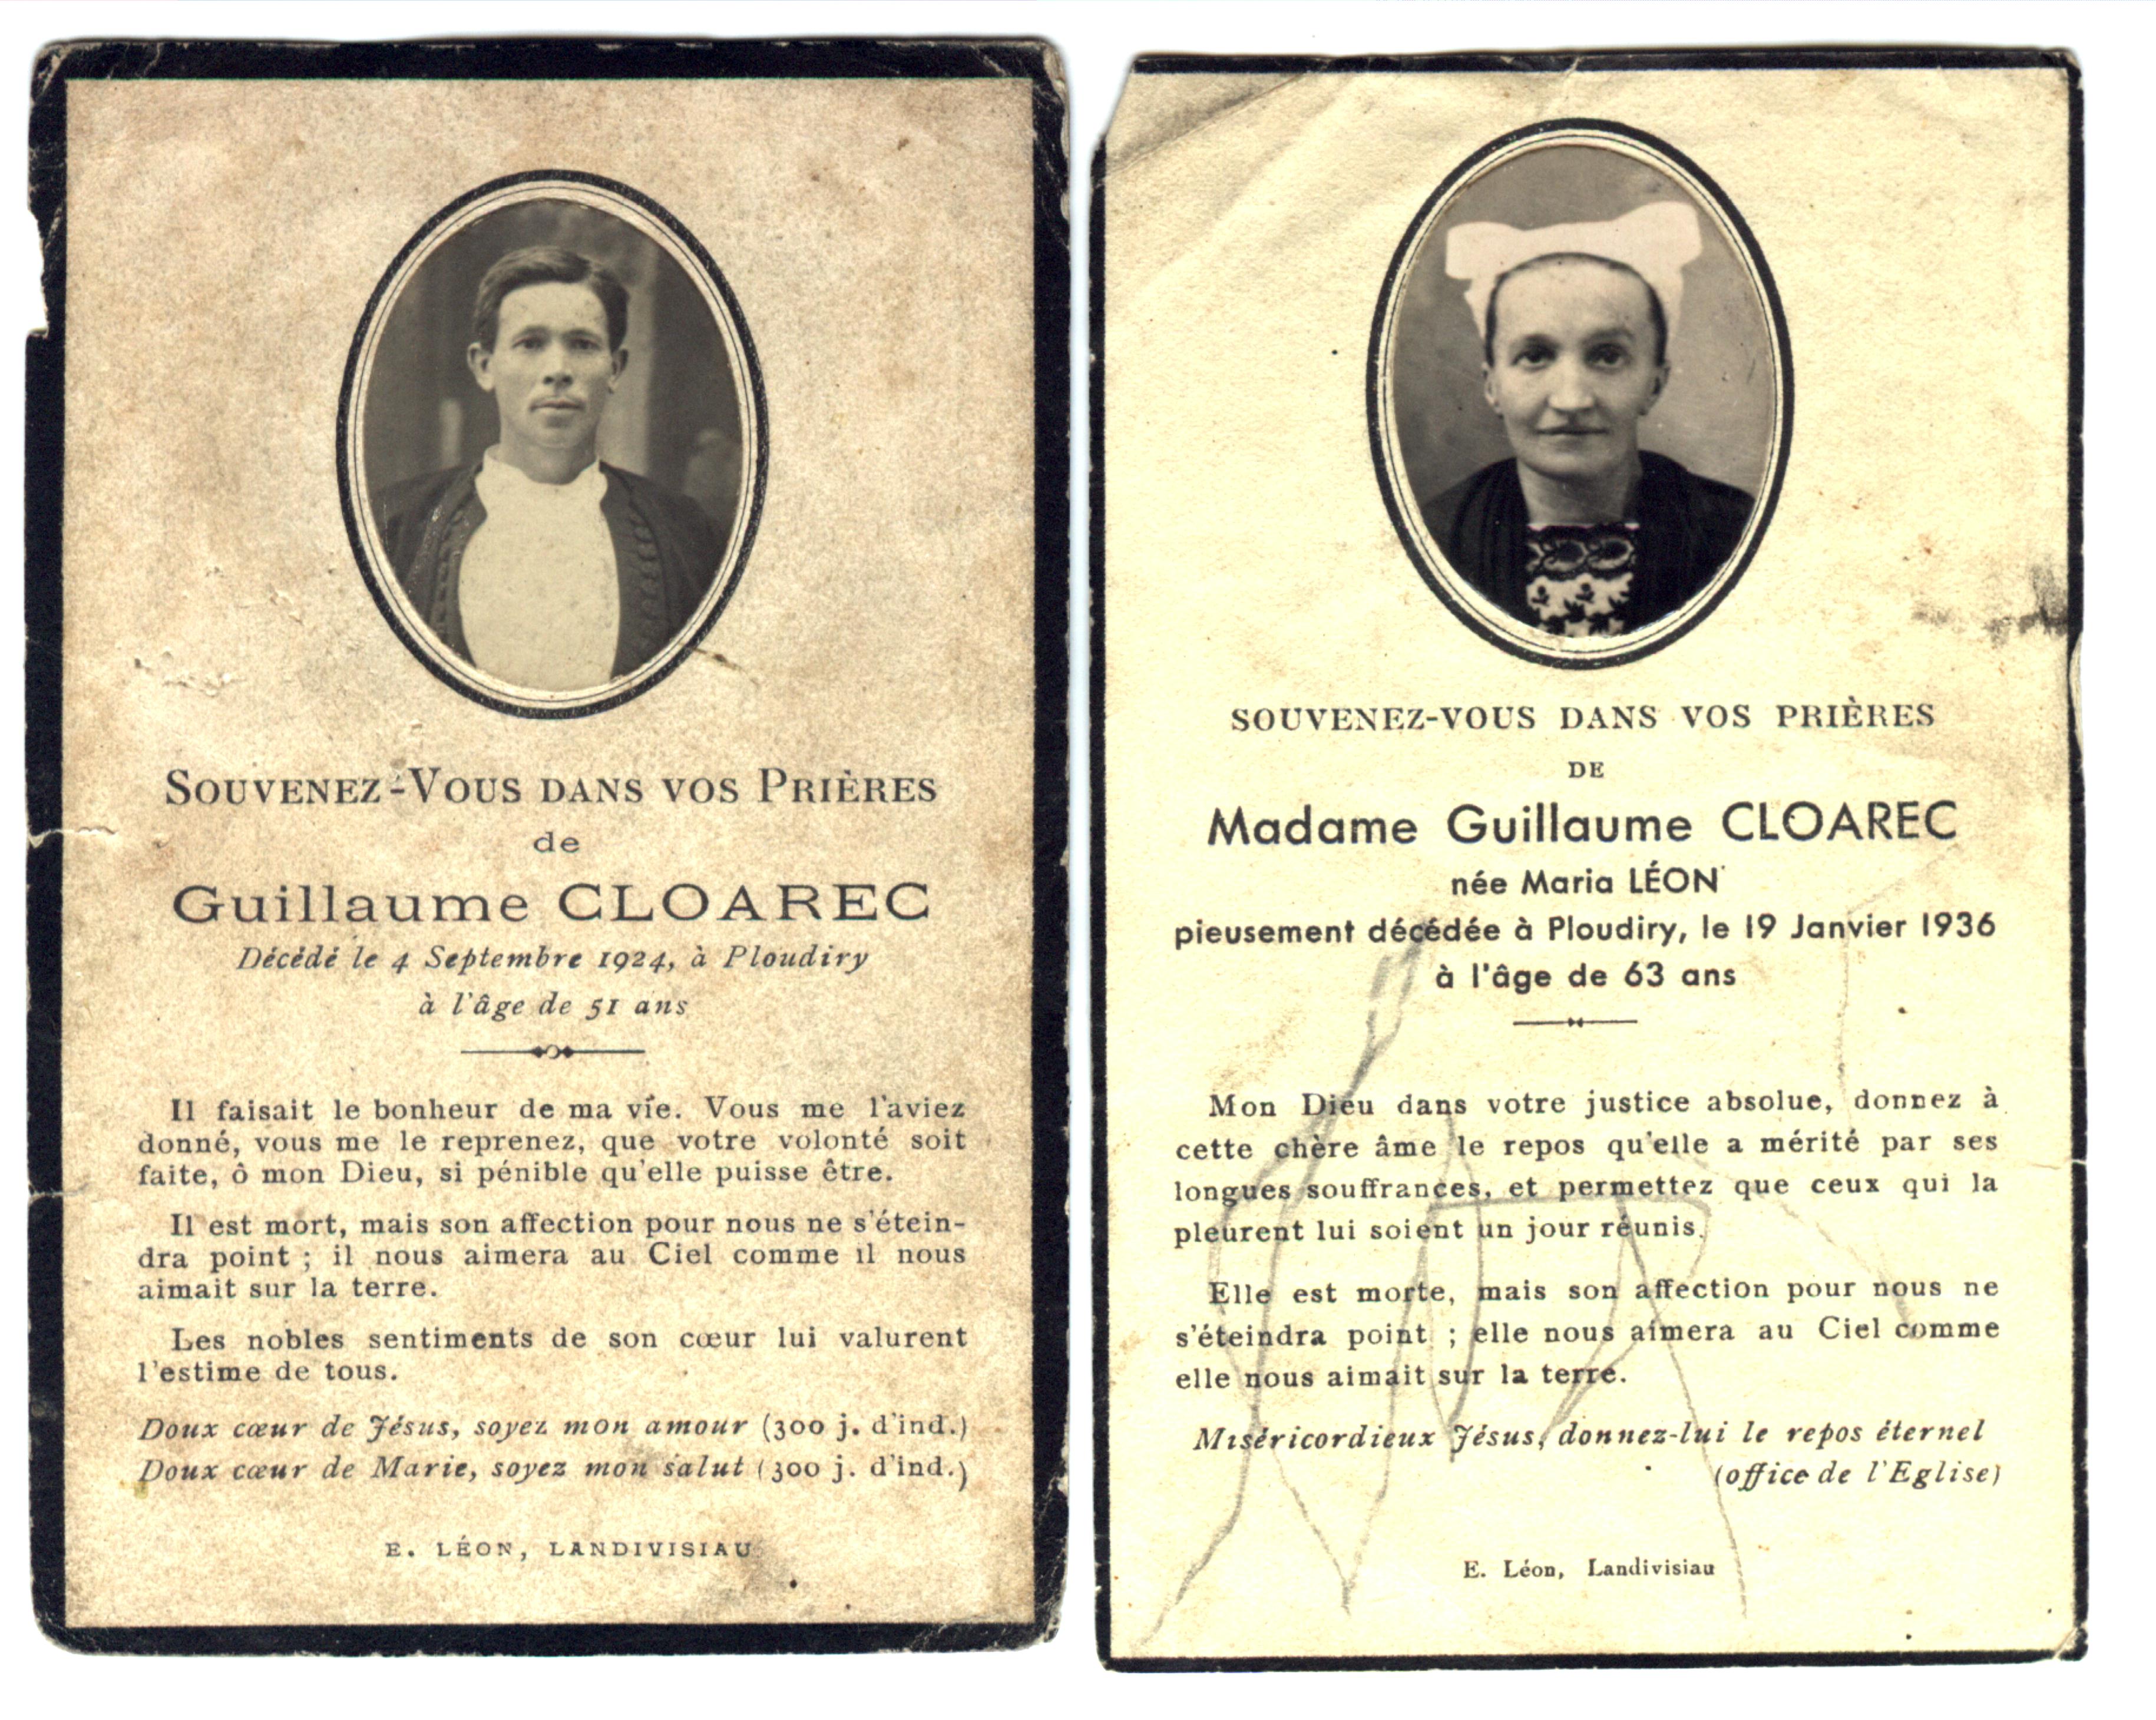 Souvenez-Vous dans vos Prières
de
Guillaume CLOAREC
Décédé le 4 Septembre 1924, à Ploudiry
à l'âge de 51 ans
Il faisait le bonheur de ma vie. Vous me l'aviez
donné, vous me le reprenez, que votre volonté soit
faite, ô mon Dieu, si pénible qu'elle puisse être.
Il est mort, mais son affection pour nous ne s'étein-
dra point ; il nous aimera au Ciel comme il nous
aimait sur la terre.
Les nobles sentiments de son cœur lui valurent
l'estime de tous.
Doux cœur de Jésus, soyez mon amour (300 j. d'ind.)
Doux cœur de Marie, soyez mon salut (300 j. d'ind.)
E. LÉON, LANDIVISIAU
SOUVENEZ-VOUS DANS VOS PRIÈRES
DE
Madame Guillaume CLOAREC
née Maria LÉON
pieusement décédée à Ploudiry, le 19 Janvier 1936
à l'âge de 63 ans
Mon Dieu dans votre justice absolue, donnez à
cette chère âme le repos qu'elle a mérité par ses
longues souffrances, et permettez que ceux qui la
pleurent lui soient un jour réunis.
Elle est morte, mais son affection pour nous ne
s'éteindra point ; elle nous aimera au Ciel comme
elle nous aimait sur la terre.
Miséricordieux Jésus, donnez-lui le repos éternel
(office de l'Eglise)
E. Léon, Landivisiau